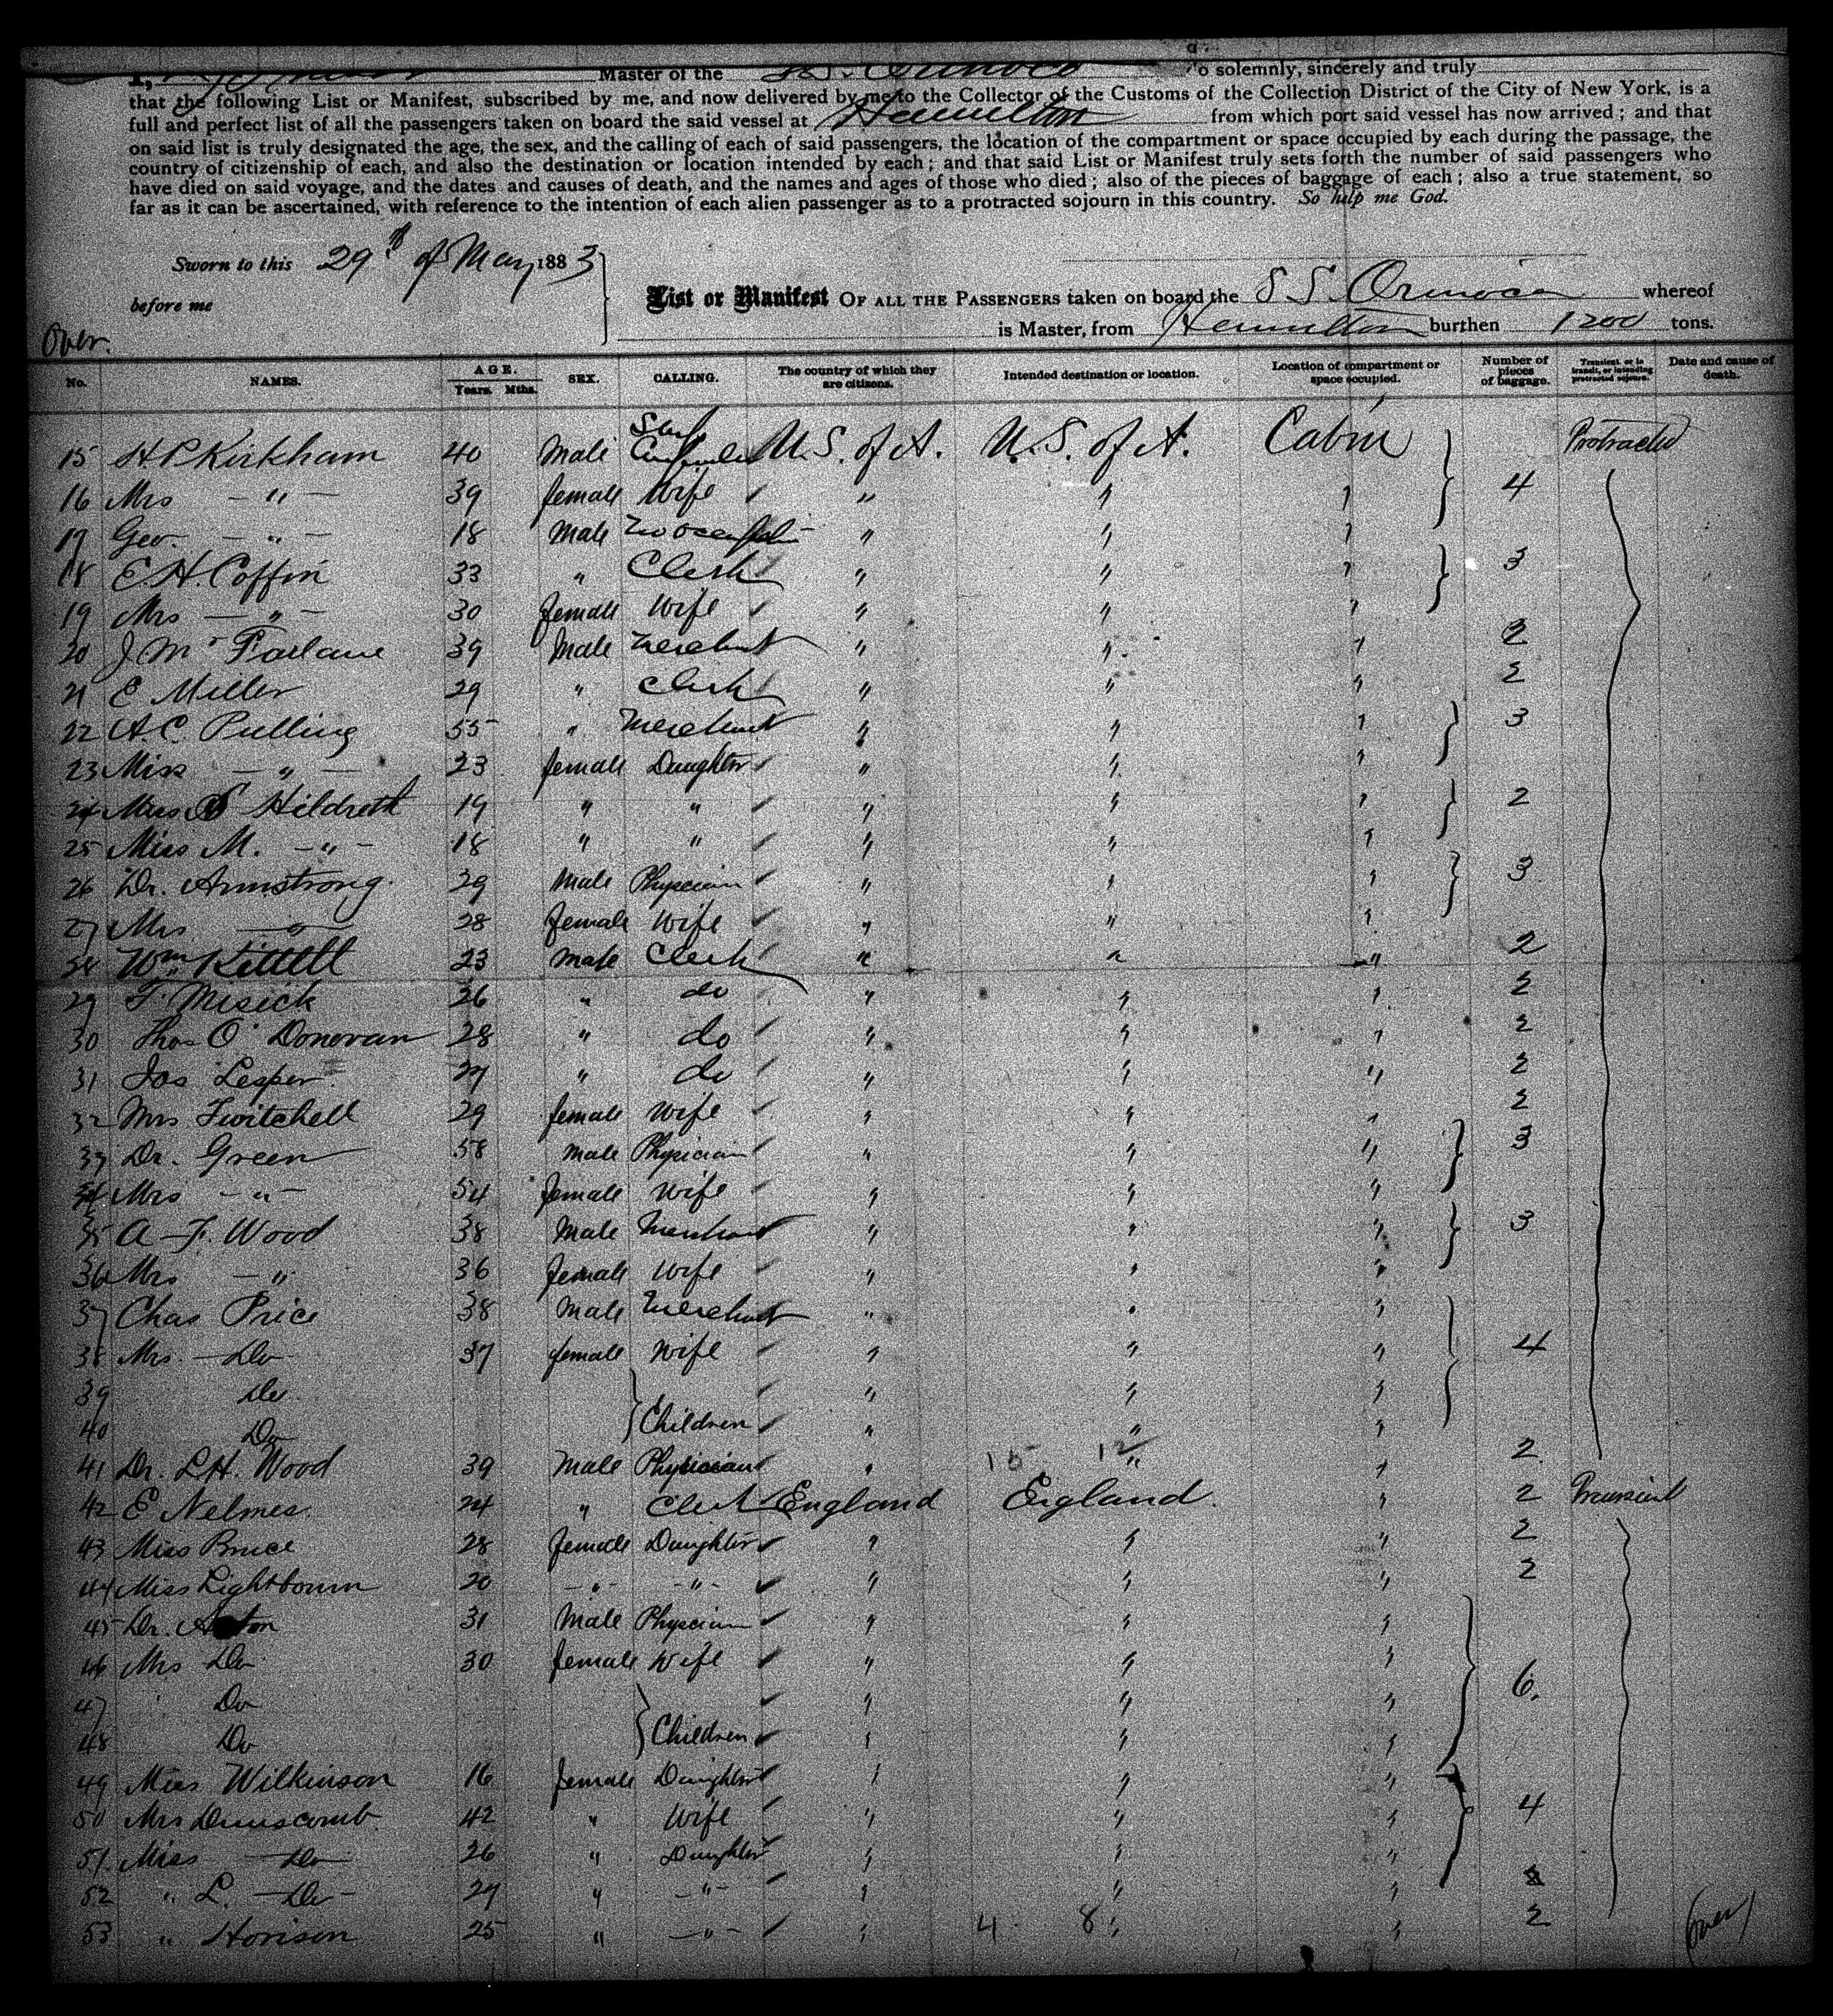 Master of the S.S. Orinoco do solemnly, sincerely and truly
that the following List or Manifest, subscribed by me, and now delivered by me to the Collector of the Customs of the Collection District of the City of New York, is a
full and perfect list of all the passengers taken on board the said vessel at Hamilton from which port said vessel has now arrived; and that
on said list is truly designated the age, the sex, and the calling of each of said passengers, the location of the compartment or space occupied by each during the passage, the
country of citizenship of each, and also the destination or location intended by each; and that said List or Manifest truly sets forth the number of said passengers who
have died on said voyage, and the dates and causes of death, and the names and ages of those who died; also of the pieces of baggage of each; also a true statement, so
far as it can be ascertained, with reference to the intention of each alien passenger as to a protracted sojourn in this country. So help me God.
Sworn to this 29th of May 1883
before me
List or Manifest OF ALL THE PASSENGERS taken on board the S S. Orinoco whereof
is Master, from Hamilton burthen 1200 tons.
Over.
No. NAMES. AGE. Years. Mths. SEX. CALLING. The country of which they are citizens. Intended destination or location. Location of compartment or space occupied. Number of pieces of baggage. Transient, or in transit, or intending protracted sojourn. Date and cause of death.
15 H.P. Kirkham 40 Male U.S. of A. U.S. of A. Cabin Protracted
16 Mrs - " - 39 female Wife " " " 4
17 Geo. - " - 18 Male No occupation " " "
18 E.H. Coffin 33 " Clerk " " " 3
19 Mrs - " - 30 female Wife " " "
20 J Mc Farlane 39 Male Merchant " " " 2
21 E Miller 29 " Clerk " " " 2
22 A.C. Pulling 55 " Merchant " " " 3
23 Miss - " - 23 female Daughter " " "
24 Miss S Hildreth 19 " " " " " 2
25 Miss M. - " - 18 " " " " "
26 Dr. Armstrong. 29 Male Physician " " " 3
27 Mrs - " - 28 female Wife " " "
28 Wm. Kittell 23 Male Clerk " " " 2
29 F. Misick 26 " do " " " 2
30 Thos O'Donovan 28 " do " " " 2
31 Jos Lesper 27 " do " " " 2
32 Mrs Twitchell 29 female Wife " " " 2
33 Dr. Green 58 Male Physician " " " 3
34 Mrs - " - 54 female Wife " " "
35 A.F. Wood 38 Male Merchant " " " 3
36 Mrs - " 36 female Wife " " "
37 Chas Price 38 Male Merchant " " "
38 Mrs. - Do 37 female Wife " " " 4
39 Do " " "
40 Do Children " " "
41 Dr. L.H. Wood 39 Male Physician " " " 2
42 E Nelmes. 24 " Clerk England England. " 2 Transient
43 Miss Bruce 28 female Daughter " " " 2
44 Miss Lightbourn 20 - " - - " - " " " 2
45 Dr. 31 Male Physician " " "
46 Mrs Do 30 female Wife " " "
47 Do " " " 6.
48 Do Children " " "
49 Miss Wilkinson 16 female Daughter " " "
50 Mrs Dunscomb. 42 " Wife " " " 4
51 Miss - Do 26 " Daughter " " "
52 " L. - Do - 27 " - " - " " "
53 " Horison 25 " - " - " 4 8 " " 2
(over)